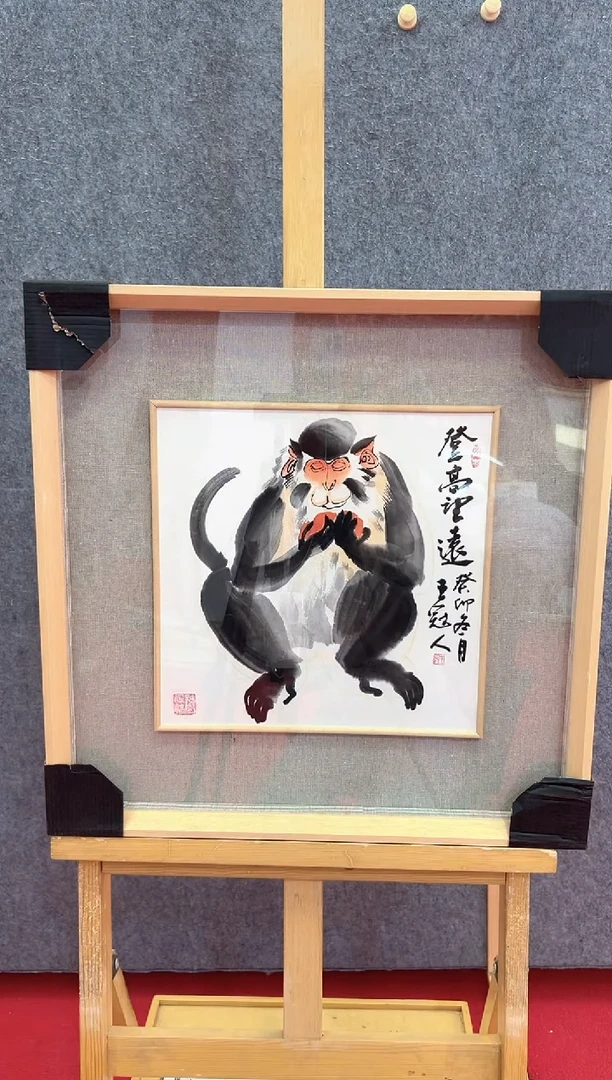 登高望遠
癸卯冬月
王冠人